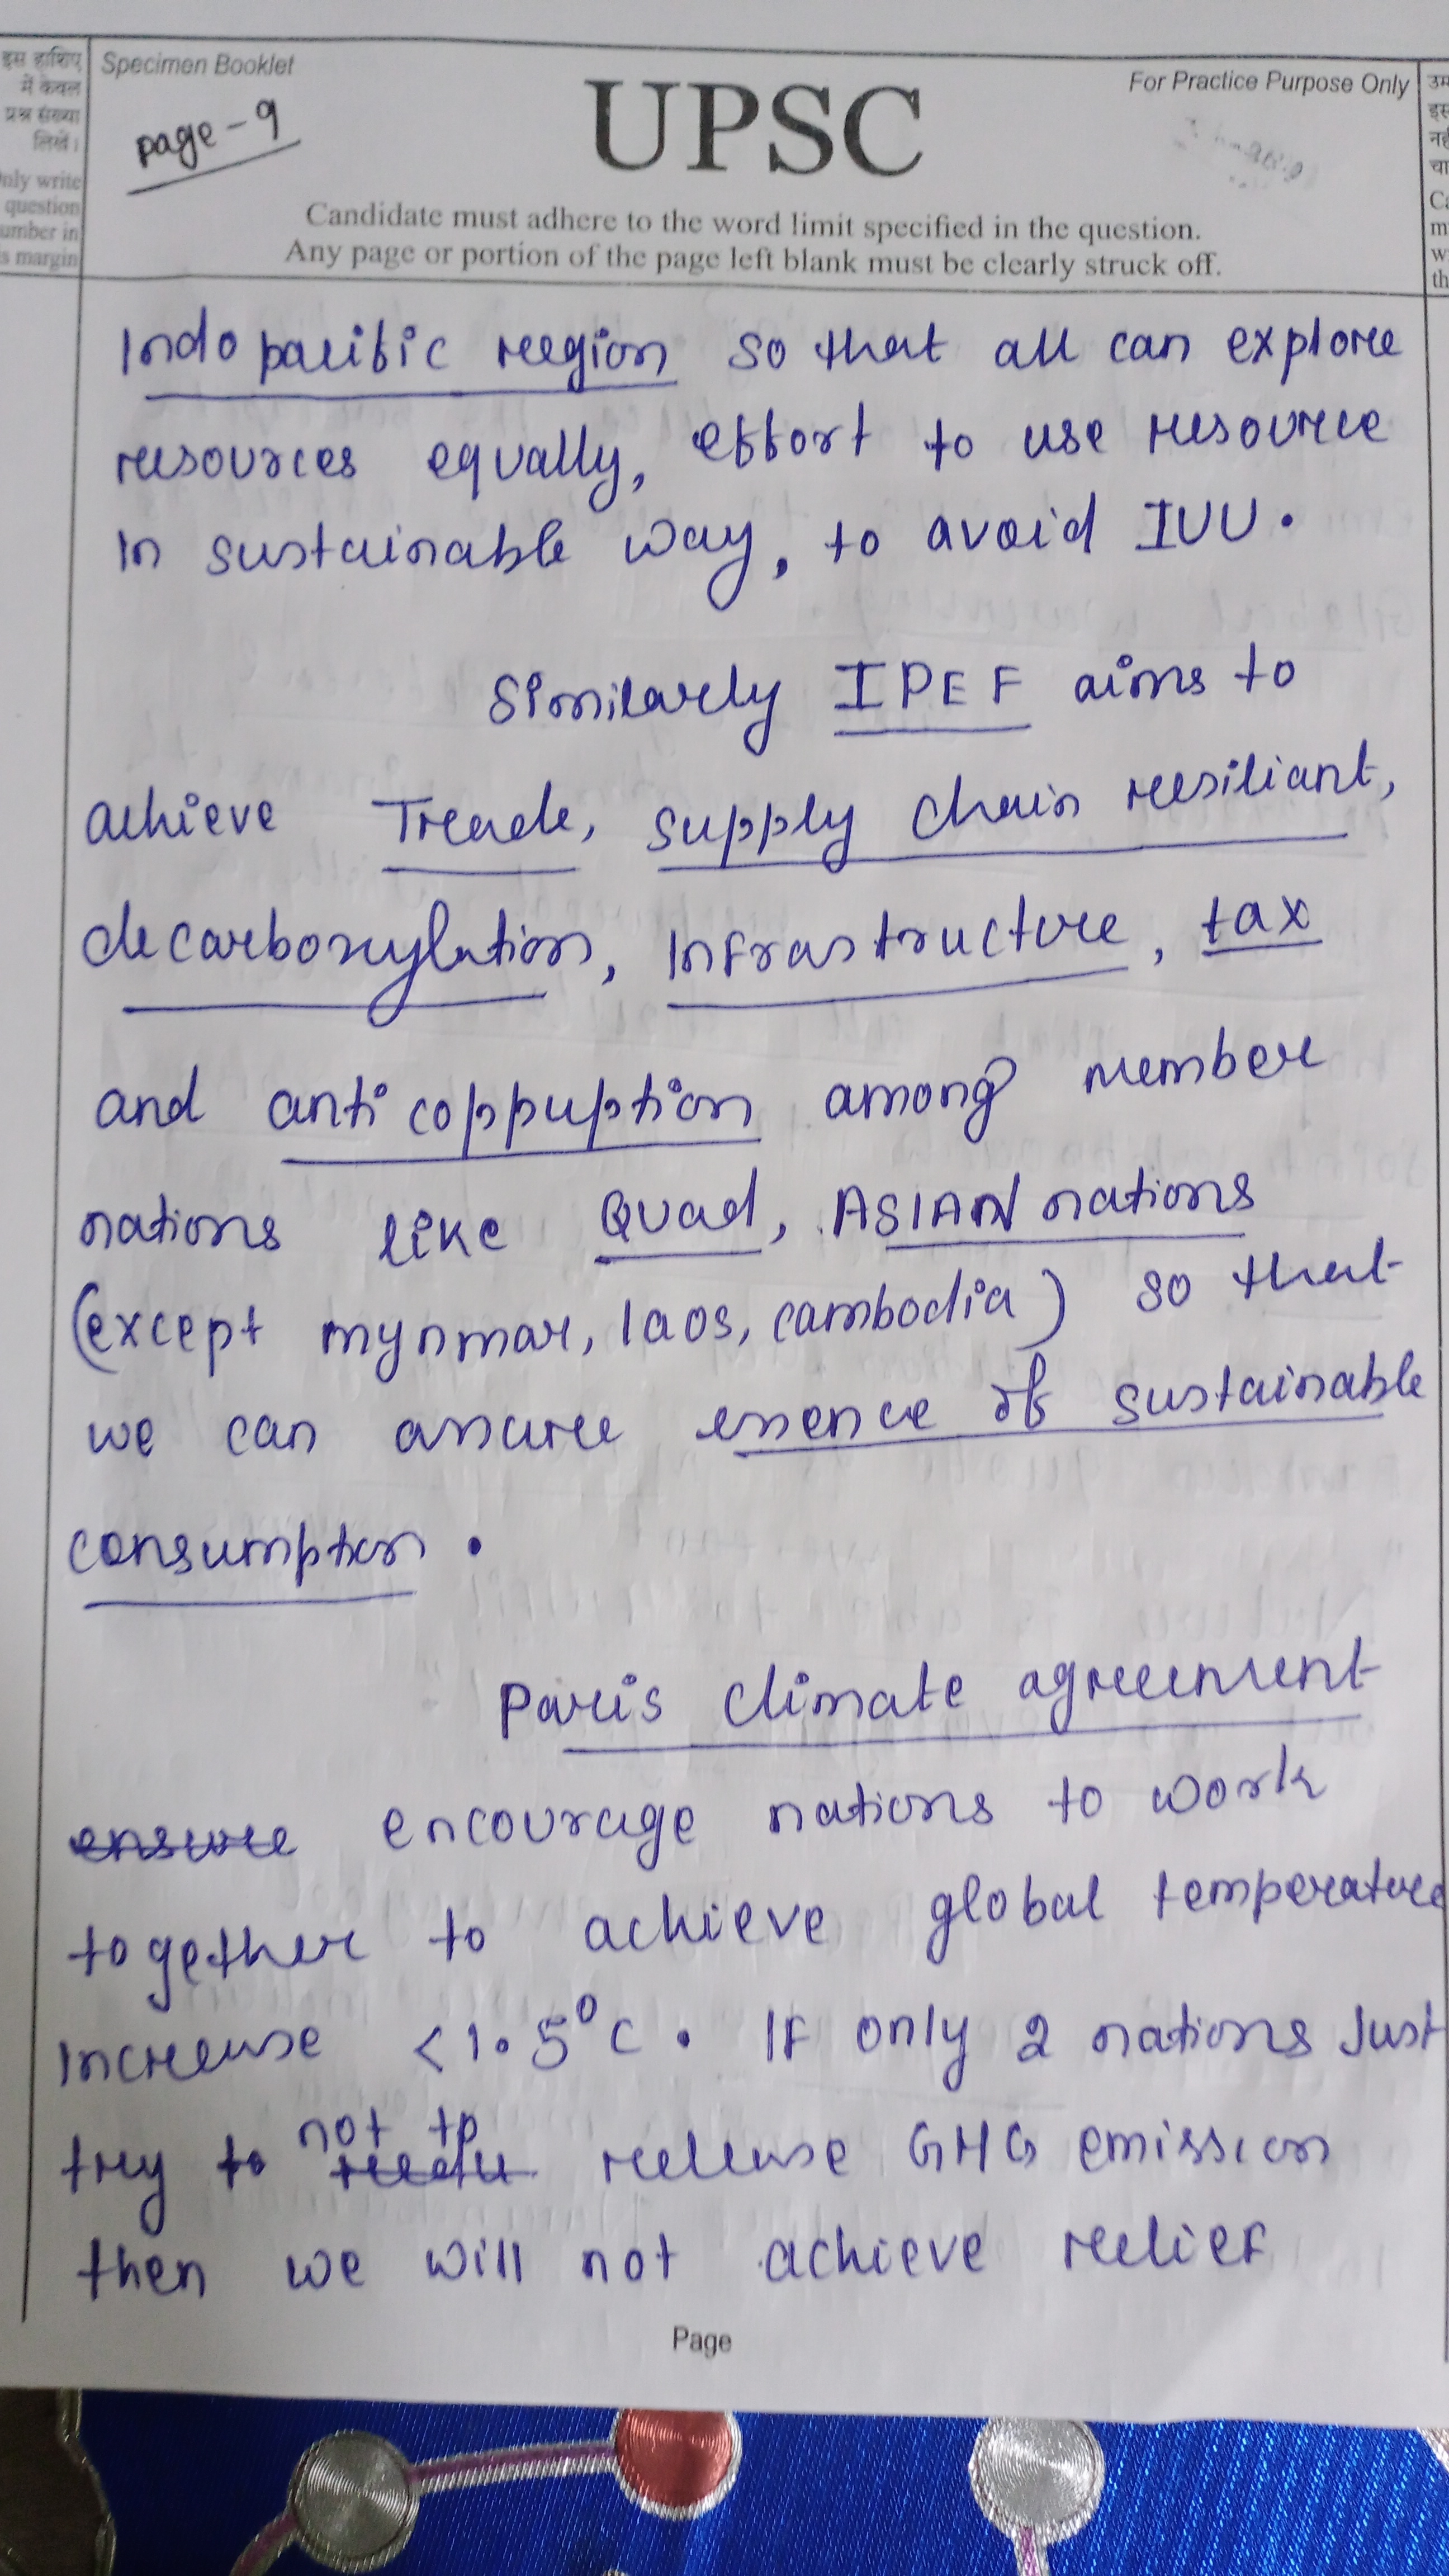 इस हाशिए
में केवल
प्रश्न संख्या
लिखें।
nly write
question
umber in
s margin
Specimen Booklet
page-9
UPSC
For Practice Purpose Only
Candidate must adhere to the word limit specified in the question.
Any page or portion of the page left blank must be clearly struck off.
उम
इस
नह
चा
Ca
m
w
th
Indo pacific region so that all can explore
resources equally, effort to use resource
in sustainable way, to avoid IUU.
Similarly IPEF aims to
achieve Trade, supply chain resiliant,
decarboxylation, Infrastructure, tax
and anti coppuption among member
nations like Quad, ASIAN nations
(except mynmar, laos, cambodia) so that
we can assure essence of sustainable
consumption.
Paris climate agreement
ensure encourage nations to work
together to achieve global temperature
increase <1.5°C. If only 2 nations Just
not to
try to release GHG emission
then we will not achieve relief
Page